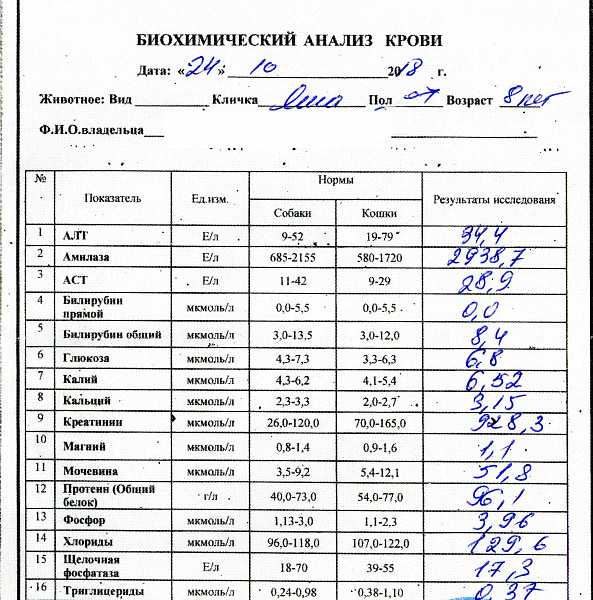 БИОХИМИЧЕСКИЙ АНАЛИЗ КРОВИ
Дата: «24» 10 2018 г.
Животное: Вид Кличка Пол Возраст 8 лет
Ф.И.О.владельца
№ Показатель Ед.изм. Нормы Результаты исследованя
Собаки Кошки
1 АЛТ Е/л 9-52 19-79 94,4
2 Амилаза Е/л 685-2155 580-1720 2938,7
3 АСТ Е/л 11-42 9-29 28,9
4 Билирубин прямой мкмоль/л 0,0-5,5 0,0-5,5 0,0
5 Билирубин общий мкмоль/л 3,0-13,5 3,0-12,0 8,4
6 Глюкоза мкмоль/л 4,3-7,3 3,3-6,3 6,8
7 Калий мкмоль/л 4,3-6,2 4,1-5,4 6,52
8 Кальций мкмоль/л 2,3-3,3 2,0-2,7 3,15
9 Креатинин мкмоль/л 26,0-120,0 70,0-165,0 928,3
10 Магний мкмоль/л 0,8-1,4 0,9-1,6 1,1
11 Мочевина мкмоль/л 3,5-9,2 5,4-12,1 51,8
12 Протеин (Общий белок) г/л 40,0-73,0 54,0-77,0 96,1
13 Фосфор мкмоль/л 1,13-3,0 1,1-2,3 3,96
14 Хлориды мкмоль/л 96,0-118,0 107,0-122,0 129,6
15 Щелочная фосфатаза Е/л 18-70 39-55 17,3
16 Триглицериды мкмоль/л 0,24-0,98 0,38-1,10 0,37